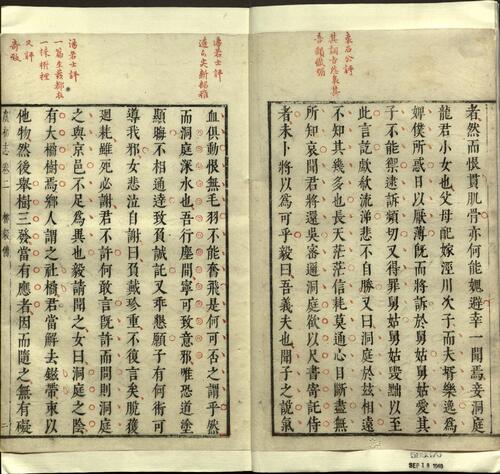 袁石公評
者然而恨貫肌骨亦何能媿避幸一聞焉妾洞庭
龍君小女也父母配嫁涇川次子而夫壻樂逸爲
婢僕所惑日以厭薄旣而將訴於舅姑舅姑愛其
子不能禦迨訴頻切又得罪舅姑舅姑毀黜以至
此言訖歔欷流涕悲不自勝又曰洞庭於茲相遠
不知其幾多也長天茫茫信耗莫通心目斷盡無
所知哀聞君將還吳密邇洞庭欲以尺書寄託侍
者未卜將以爲可乎毅曰吾義夫也聞子之說氣
湯若士評
血俱動恨無毛羽不能奮飛是何可否之謂乎然
而洞庭深水也吾行塵間寧可致意邪唯恐道塗
顯晦不相通達致負誠託又乖懇願子有何術可
導我邪女悲泣自謝曰負戴珍重不復言矣脫獲
迴耗雖死必謝君不許何敢言旣許而問則洞庭
之與京邑不足爲異也毅請聞之女曰洞庭之陰
湯若士評
一篇生發都在
一株樹裡
又評
有大橘樹焉鄉人謂之社橘君當解去茲帶束以
他物然後舉樹三發當有應者因而隨之無有礙
虞初志 卷二 柳毅傳 二
SEP 18 1940